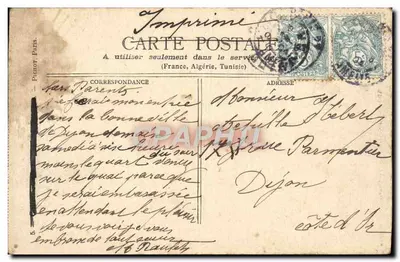 Imprimé
CARTE POSTALE
A utiliser seulement dans le service
(France, Algérie, Tunisie)
CORRESPONDANCE
ADRESSE
Chers Parents
je ferai mon entrée
dans la bonne ville
de Dijon demain
samedi à six heures du soir
moins le quart venez
sur le quai parce que
je serai embarassée
en attendant le plaisir
de vous voir je vous
embrasse de tout cœur
Monsieur
Hébert
12 Rue Parmentier
Dijon
Côte d'Or